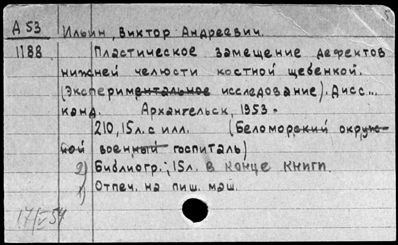 А 53 Ильин, Виктор Андреевич.
1188 Пластическое замещение дефектов
нижней челюсти костной щебенкой.
(Экспериментальное исследование). Дисс...
канд. Архангельск, 1953.
210, 15 л. с илл. (Беломорский окруж-
ной военный госпиталь)
2) Библиогр.: 15 л. в конце книги.
1) Отпеч. на пиш. маш.
17/V 54